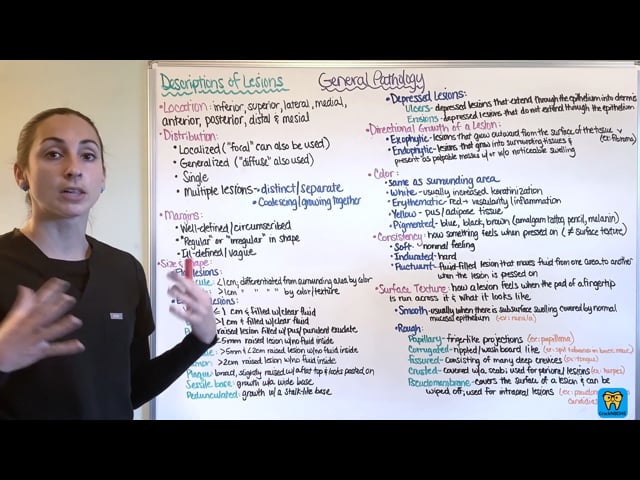 Descriptions of Lesions
General Pathology
• Location: inferior, superior, lateral, medial,
anterior, posterior, distal & mesial
• Distribution:
• Localized ("focal" can also be used)
• Generalized ("diffuse" also used)
• Single
• Multiple lesions - distinct/separate
• Coalescing/growing together
• Margins:
• Well-defined/circumscribed
• "Regular" or "irregular" in shape
• Ill-defined/vague
• Size & Shape:
lesions
<1cm, differentiated from surrounding area by color
>1cm " " " " by color/texture
lesions:
≤ 1 cm & filled w/clear fluid
>1cm & filled w/clear fluid
raised lesion filled w/pus/purulent exudate
<5mm raised lesion w/no fluid inside
>5mm & <2cm raised lesion w/no fluid inside
Plaque: broad, slightly raised w/a flat top & looks pasted on
Sessile base: growth w/a wide base
Pedunculated: growth w/a stalk-like base
• Depressed Lesions:
Ulcers - depressed lesions that extend through the epithelium into dermis
Erosions - depressed lesions that do not extend through the epithelium
• Directional Growth of a Lesion:
• Exophytic - lesions that grow outward from the surface of the tissue
(ex: fibroma)
• Endophytic - lesions that grow into surrounding tissues &
present as palpable masses w/ or w/o noticeable swelling
• Color:
• Same as surrounding area
• White - usually increased keratinization
• Erythematic - red → vascularity/inflammation
• Yellow - pus/adipose tissue
• Pigmented - blue, black, brown (amalgam tattoo, pencil, melanin)
• Consistency: how something feels when pressed on (≠ surface texture)
• Soft - normal feeling
• Indurated - hard
• Fluctuant - fluid-filled lesion that moves fluid from one area to another
when the lesion is pressed on
• Surface Texture: how a lesion feels when the pad of a fingertip
is run across it & what it looks like
• Smooth - usually when there is subsurface swelling covered by normal
mucosal epithelium (ex: ranula)
• Rough:
Papillary - finger-like projections (ex: papilloma)
Corrugated - rippled/washboard like (ex: spit tobacco in buccal mucosa)
Fissured - consisting of many deep crevices (ex: tongue)
Crusted - covered w/a scab; used for perioral lesions (ex: herpes)
Pseudomembrane - covers the surface of a lesion & can be
wiped off; used for intraoral lesions